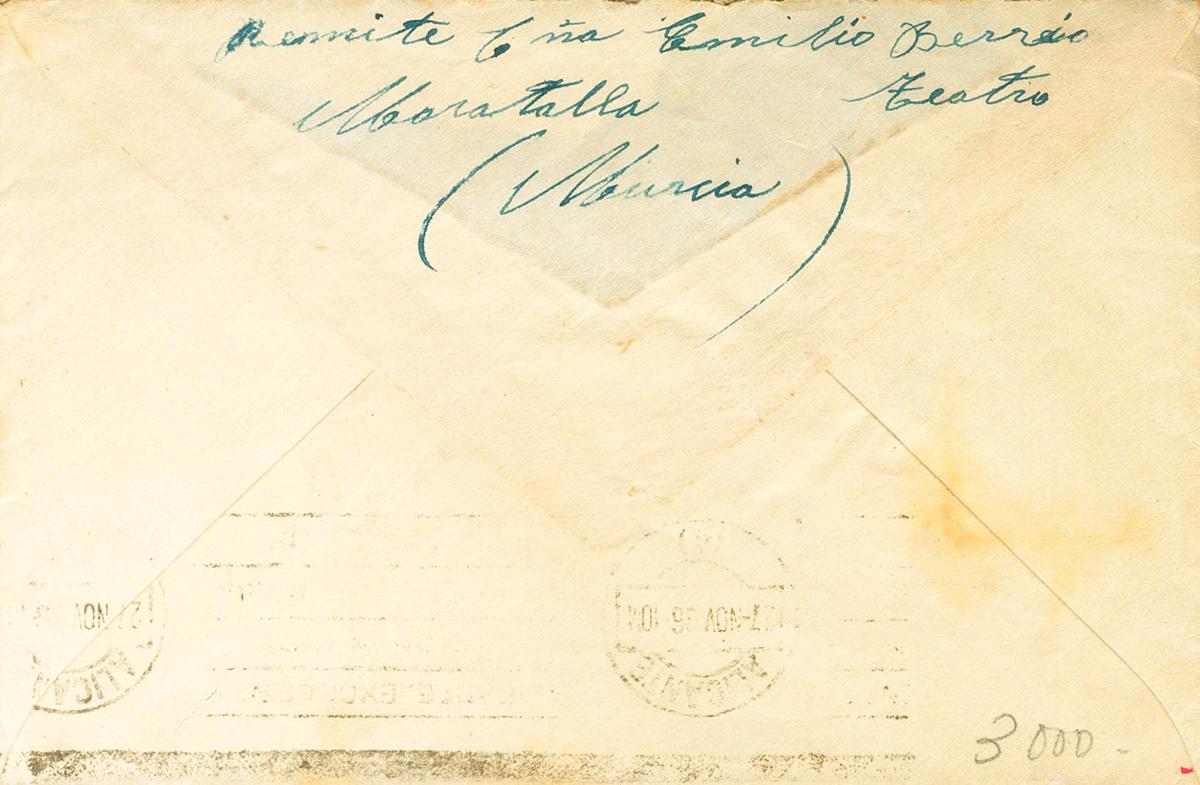 Remite Cña Emilio Berrio
Moratalla Teatro
(Murcia)
27-NOV 36-10M
27 NOV
ALICANTE
ALICA
3000-